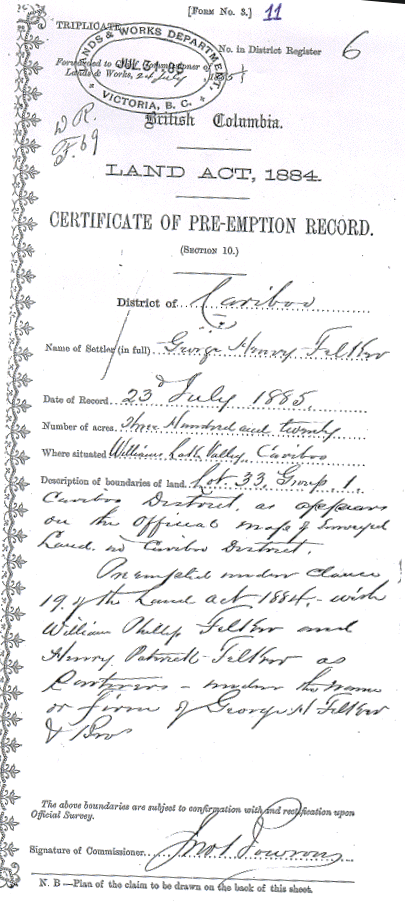 [FORM NO. 3.] 11
TRIPLICATE.
No. in District Register 6
LANDS & WORKS DEPARTMENT,
JUL 31 85
VICTORIA, B.C.
Forwarded to Commissioner of
Lands & Works, July
W R.
F. 69
British Columbia.
LAND ACT, 1884.
CERTIFICATE OF PRE-EMPTION RECORD.
(SECTION 10.)
District of Cariboo
Name of Settler (in full) George Henry Felker
Date of Record 23d July 1885.
Number of acres. Three Hundred and twenty
Where situated Williams Lake Valley, Cariboo
Description of boundaries of land. Lot 33, Group 1,
Cariboo District, as appears
on the Official map of Surveyed
Land. in Cariboo District.
Pre empted under clause
19. of the Land act 1884. - with
William Phillip Felker and
Henry Patrick Felker as
Partners - under the name
or firm of George H Felker
& Bros
The above boundaries are subject to confirmation with and rectification upon
Official Survey.
Signature of Commissioner
N. B—Plan of the claim to be drawn on the back of this sheet.